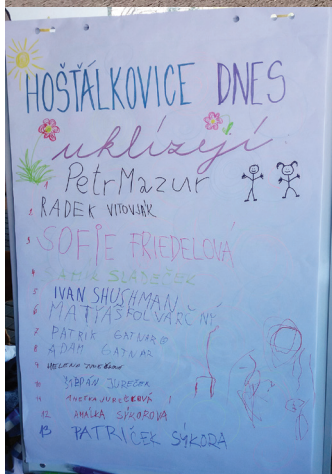 HOŠŤÁLKOVICE DNES
uklízejí
1 Petr Mazur
2 RADEK VITOVJÁK
3 SOFIE FRIEDELOVÁ
4 SLÁDEČEK
5 IVAN SHUSHMAN
6 MATYÁŠ KOLVARČNÝ
7 PATRIK GATNAR
8 ADAM GATNAR
9 HELENA
10 ŠTĚPÁN JUREČEK
11 ANETKA JUREČKOVÁ
12 AMÁLKA SÝKOROVÁ
13 PATRIČEK SÝKORA